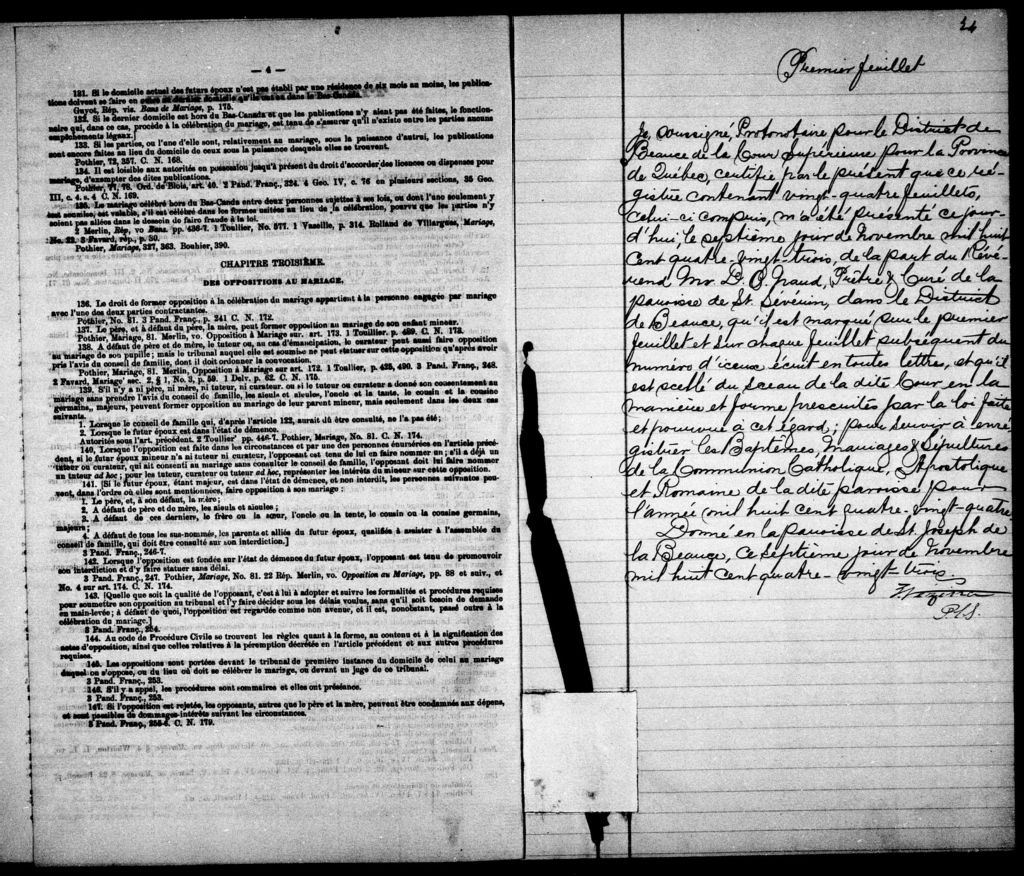 — 4 —
131. Si le domicile actuel des futurs époux n'est pas établi par une résidence de six mois au moins, les publica-
tions doivent se faire en outre au dernier domicile qu'ils ont eu dans le Bas-Canada.
Guyot, Rép. vis. Bans de Mariage, p. 175.
132. Si le dernier domicile est hors du Bas-Canada et que les publications n'y aient pas été faites, le fonction-
naire qui, dans ce cas, procède à la célébration du mariage, est tenu de s'assurer qu'il n'existe entre les parties aucuns
empêchements légaux.
133. Si les parties, ou l'une d'elles, sont, relativement au mariage, sous la puissance d'autrui, les publications
sont encore faites au lieu du domicile de ceux sous la puissance desquels elles se trouvent.
Pothier, 72, 357. C. N. 168.
134. Il est loisible aux autorités en possession jusqu'à présent du droit d'accorder des licences ou dispenses pour
mariage, d'exempter des dites publications.
Pothier, 71, 78. Ord. de Blois, art. 40. 2 Pand. Franç., 324. 4 Geo. IV, c. 76 en plusieurs sections, 35 Geo.
III, c. 4. s. 4 C. N. 169.
135. Le mariage célébré hors du Bas-Canada entre deux personnes sujettes à ses lois, ou dont l'une seulement y
est soumise, est valable, s'il est célébré dans les formes usitées au lieu de la célébration, pourvu que les parties n'y
soient pas allées dans le dessein de faire fraude à la loi.
2 Merlin, Rép, vo Bans, pp. 436-7. 1 Toullier, No. 577. 1 Vazeille, p. 314. Rolland de Villargues, Mariage,
No. 22. 3 Favard, rép., p. 80.
Pothier, Mariage, 327, 363. Bouhier, 390.
CHAPITRE TROISIÈME.
DES OPPOSITIONS AU MARIAGE.
136. Le droit de former opposition à la célébration du mariage appartient à la personne engagée par mariage
avec l'une des deux parties contractantes.
Pothier, No. 81. 3 Pand. Franç., p. 241 C. N. 172.
137. Le père, et à défaut du père, la mère, peut former opposition au mariage de son enfant mineur.
Pothier, Mariage, 81. Merlin, vo. Opposition à Mariage sur. art. 173. 1 Toullier. p. 489. C. N. 173.
138. A défaut de père et de mère, le tuteur ou, au cas d'émancipation, le curateur peut aussi faire opposition
au mariage de son pupille; mais le tribunal auquel elle est soumise ne peut statuer sur cette opposition qu'après avoir
pris l'avis du conseil de famille, dont il doit ordonner la convocation.
Pothier, Mariage, 81. Merlin, Opposition à Mariage sur art. 172. 1 Toullier, p. 425, 490. 3 Pand. Franç., 248.
2 Favard, Mariage' sec. 2. § 1, No. 3, p. 59. 1 Delv. p. 62. C. N. 175.
139. S'il n'y a ni père, ni mère, ni tuteur, ni curateur, ou si le tuteur ou curateur a donné son consentement au
mariage sans prendre l'avis du conseil de famille, les aïeuls et aïeules, l'oncle et la tante, le cousin et la cousine
germains, majeurs, peuvent former opposition au mariage de leur parent mineur, mais seulement dans les deux cas
suivants.
1. Lorsque le conseil de famille qui, d'après l'article 122, aurait dû être consulté, ne l'a pas été;
2. Lorsque le futur époux est dans l'état de démence.
Autorités sous l'art. précédent. 2 Toullier' pp. 446-7. Pothier, Mariage, No. 81. C. N. 174.
140. Lorsque l'opposition est faite dans les circonstances et par une des personnes énumérées en l'article précé-
dent, si le futur époux mineur n'a ni tuteur ni curateur, l'opposant est tenu de lui en faire nommer un; s'il a déjà un
tuteur ou curateur, qui ait consenti au mariage sans consulter le conseil de famille, l'opposant doit lui faire nommer
un tuteur ad hoc; pour les tuteur, curateur ou tuteur ad hoc, représenter les intérêts du mineur sur cette opposition.
141. [Si le futur époux, étant majeur, est dans l'état de démence, et non interdit, les personnes suivantes peu-
vent, dans l'ordre où elles sont mentionnées, faire opposition à son mariage:
1. Le père, et, à son défaut, la mère;
2. A défaut de père et de mère, les aïeuls et aïeules;
3. A défaut de ces derniers, le frère ou la sœur, l'oncle ou la tante, le cousin ou la cousine germains,
majeurs;
4. A défaut de tous les sus-nommés, les parents et alliés du futur époux, qualifiés à assister à l'assemblée du
conseil de famille, qui doit être consulté sur son interdiction.]
3 Pand. Franç., 246-7.
142. Lorsque l'opposition est fondée sur l'état de démence du futur époux, l'opposant est tenu de promouvoir
son interdiction et d'y faire statuer sans délai.
3 Pand. Franç., 247. Pothier, Mariage, No. 81. 22 Rép. Merlin, vo. Opposition au Mariage, pp. 88 et suiv., et
No. 4 sur art. 174. C. N. 174.
143. [Quelle que soit la qualité de l'opposant, c'est à lui à adopter et suivre les formalités et procédures requises
pour soumettre son opposition au tribunal et l'y faire décider sous les délais voulus, sans qu'il soit besoin de demande
en main-levée; à défaut de quoi, l'opposition est regardée comme non avenue, et il est, nonobstant, passé outre à la
célébration du mariage.]
3 Pand. Franç., 254.
144. Au code de Procédure Civile se trouvent les règles quant à la forme, au contenu et à la signification des
actes d'opposition, ainsi que celles relatives à la péremption décrétée en l'article précédent et aux autres procédures
requises.
145. Les oppositions sont portées devant le tribunal de première instance du domicile de celui au mariage
duquel on s'oppose, ou du lieu où doit se célébrer le mariage, ou devant un juge de ce tribunal.
3 Pand. Franç., 253.
146. S'il y a appel, les procédures sont sommaires et elles ont préséance.
3 Pand. Franç., 253.
147. Si l'opposition est rejetée, les opposants, autres que le père et la mère, peuvent être condamnés aux dépens,
et sont passibles de dommages-intérêts suivant les circonstances.
3 Pand. Franç., 255-6. C. N. 179.
24
Premier feuillet
Je, soussigné, Protonotaire pour le District de
Beauce de la Cour Supérieure pour la Province
de Québec, certifie par le présent que ce ré-
gistre contenant vingt-quatre feuillets,
celui-ci compris, m'a été présenté ce jour-
d'hui, le septième jour de Novembre mil huit
cent quatre-vingt-trois, de la part du Révé-
rend Mr. D. O. Naud, Prêtre & Curé de la
paroisse de St. Séverin, dans le District
de Beauce, qu'il est marqué sur le premier
feuillet et sur chaque feuillet subséquent du
numéro d'iceux écrit en toutes lettres, et qu'il
est scellé du sceau de la dite Cour en la
manière et forme prescrites par la loi faite
et pourvue à cet égard; pour servir à enre-
gistrer les Baptêmes, Mariages & Sépultures
de la Communion Catholique, Apostolique
et Romaine de la dite paroisse pour
l'année mil huit cent quatre-vingt-quatre.
Donné en la paroisse de St. Joseph de
la Beauce, ce septième jour de Novembre
mil huit cent quatre-vingt-trois
P.C.S.